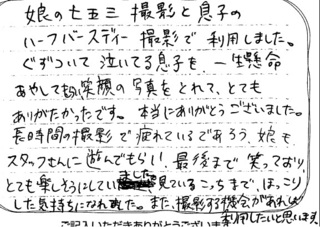 娘の七五三撮影と息子の
ハーフバースデー撮影で利用しました。
ぐずついて泣いてる息子を、一生懸命
あやしても笑顔の写真をとれて、とても
ありがたかったです。本当にありがとうございました。
長時間の撮影で疲れているであろう、娘も
スタッフさんに遊んでもらい、最後まで笑っており、
とても楽しそうにしていました 見ているこっちまで、ほっこり
した気持ちになれました。また、撮影する機会があれば
利用したいと思います。
ご記入いただきありがとうございま